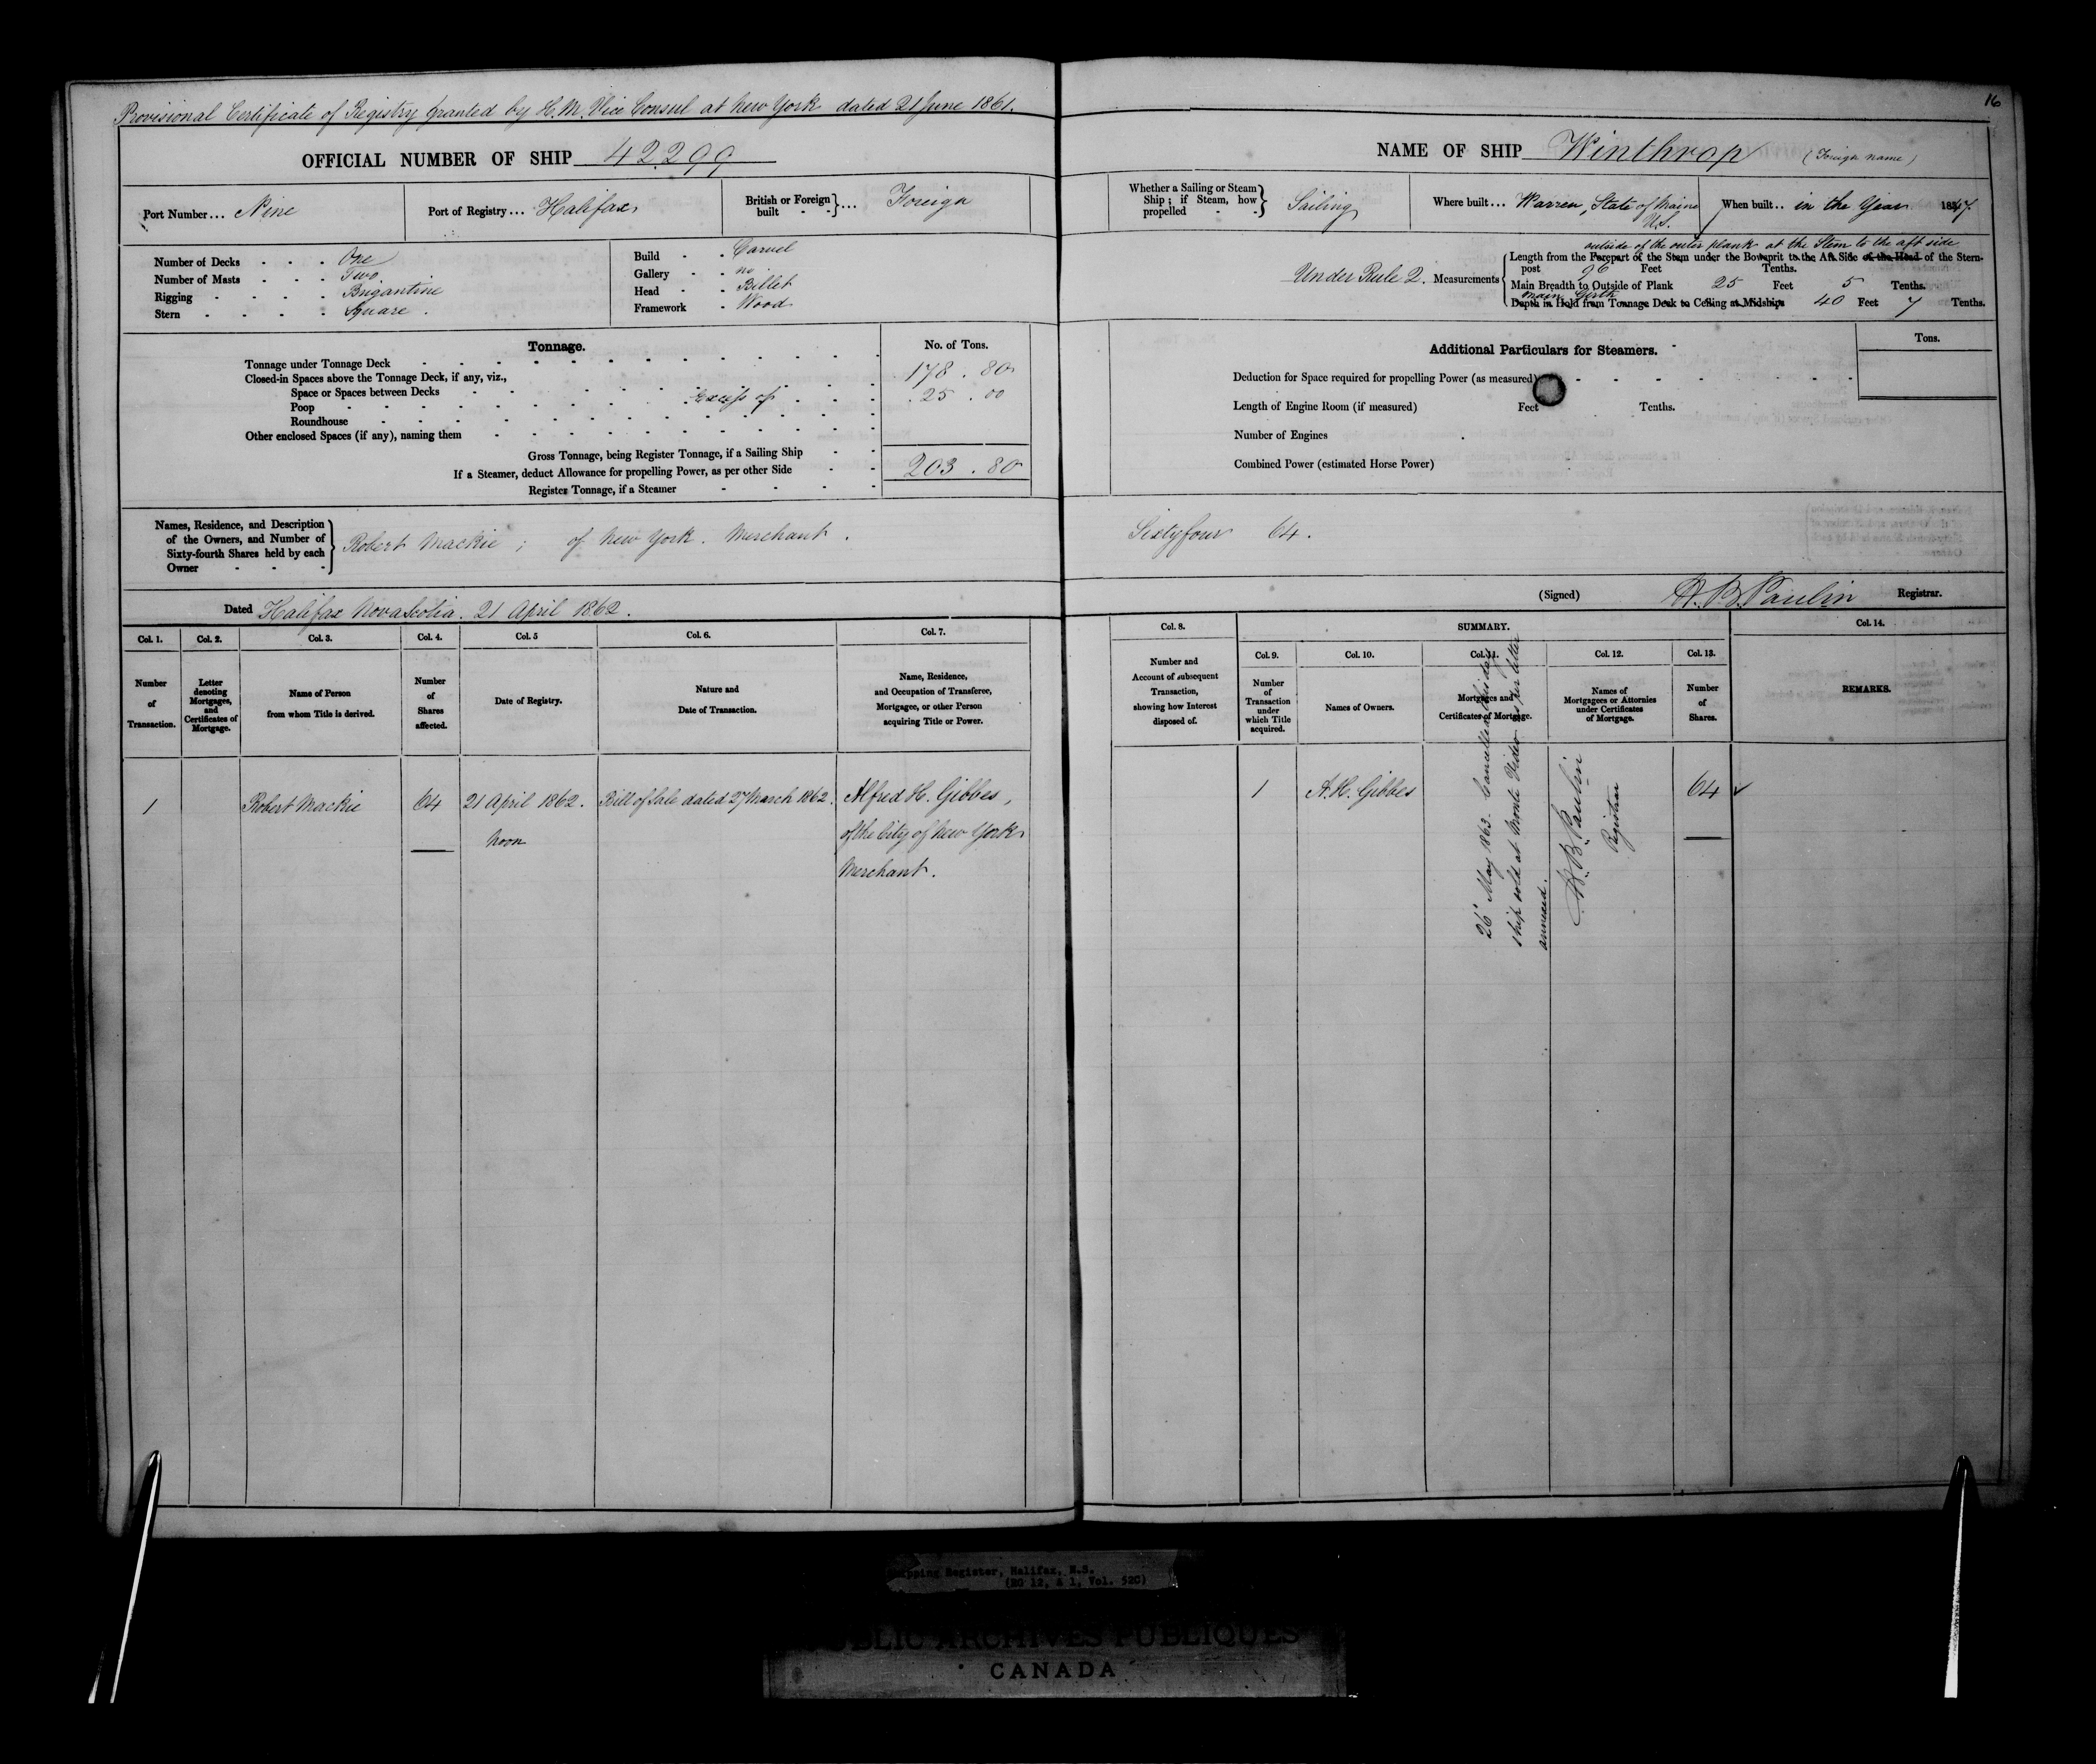 16
Provisional Certificate of Registry granted by H.M. Vice Consul at New York dated 21 June 1861.
OFFICIAL NUMBER OF SHIP 42299
NAME OF SHIP Winthrop (Foreign name)
Port Number... Nine
Port of Registry... Halifax
British or Foreign built }... Foreign
Whether a Sailing or Steam Ship; if Steam, how propelled } Sailing
Where built... Warren, State of Maine U.S.
When built.. in the Year 1847
Number of Decks One
Number of Masts Two
Rigging Brigantine
Stern Square.
Build Carvel
Gallery no
Head Billet
Framework Wood
Under Rule 2. Measurements
outside of the outer plank at the Stem to the aft side
Length from the Forepart of the Stem under the Bowsprit to the Aft Side of the Head of the Stern-
post 96 Feet Tenths.
Main Breadth to Outside of Plank 25 Feet 5 Tenths.
Main Girth
Depth in Hold from Tonnage Deck to Ceiling at Midships 40 Feet 7 Tenths.
Tonnage.
No. of Tons.
Tonnage under Tonnage Deck 178.80
Closed-in Spaces above the Tonnage Deck, if any, viz.,
Space or Spaces between Decks
Poop Excess of 25.00
Roundhouse
Other enclosed Spaces (if any), naming them
Gross Tonnage, being Register Tonnage, if a Sailing Ship 203.80
If a Steamer, deduct Allowance for propelling Power, as per other Side
Register Tonnage, if a Steamer
Additional Particulars for Steamers.
Tons.
Deduction for Space required for propelling Power (as measured)
Length of Engine Room (if measured) Feet Tenths.
Number of Engines
Combined Power (estimated Horse Power)
Names, Residence, and Description
of the Owners, and Number of
Sixty-fourth Shares held by each
Owner
Robert Mackie; of New York. Merchant.
Sixtyfour 64.
Dated Halifax Nova Scotia. 21 April 1862.
(Signed) H. B. Paulin Registrar.
Col. 1.
Number of Transaction.
Col. 2.
Letter denoting Mortgages, and Certificates of Mortgage.
Col. 3.
Name of Person from whom Title is derived.
Col. 4.
Number of Shares affected.
Col. 5
Date of Registry.
Col. 6.
Nature and Date of Transaction.
Col. 7.
Name, Residence, and Occupation of Transferee, Mortgagee, or other Person acquiring Title or Power.
Col. 8.
Number and Account of subsequent Transaction, showing how Interest disposed of.
SUMMARY.
Col. 9.
Number of Transaction under which Title acquired.
Col. 10.
Names of Owners.
Col. 11.
Mortgages and Certificates of Mortgage.
Col. 12.
Names of Mortgagees or Attornies under Certificates of Mortgage.
Col. 13.
Number of Shares.
Col. 14.
REMARKS.
1
Robert Mackie
64
21 April 1862.
Noon
Bill of Sale dated 27 March 1862.
Alfred H. Gibbes,
of the City of New York
Merchant.
1
A. H. Gibbes
26 May 1863. Cancelled this day
ship sold at Monte Video as per letter
annexed.
H. B. Paulin
Registrar
64
Shipping Register, Halifax, N.S.
(RG 12, A 1, Vol. 520)
PUBLIC ARCHIVES PUBLIQUES
CANADA